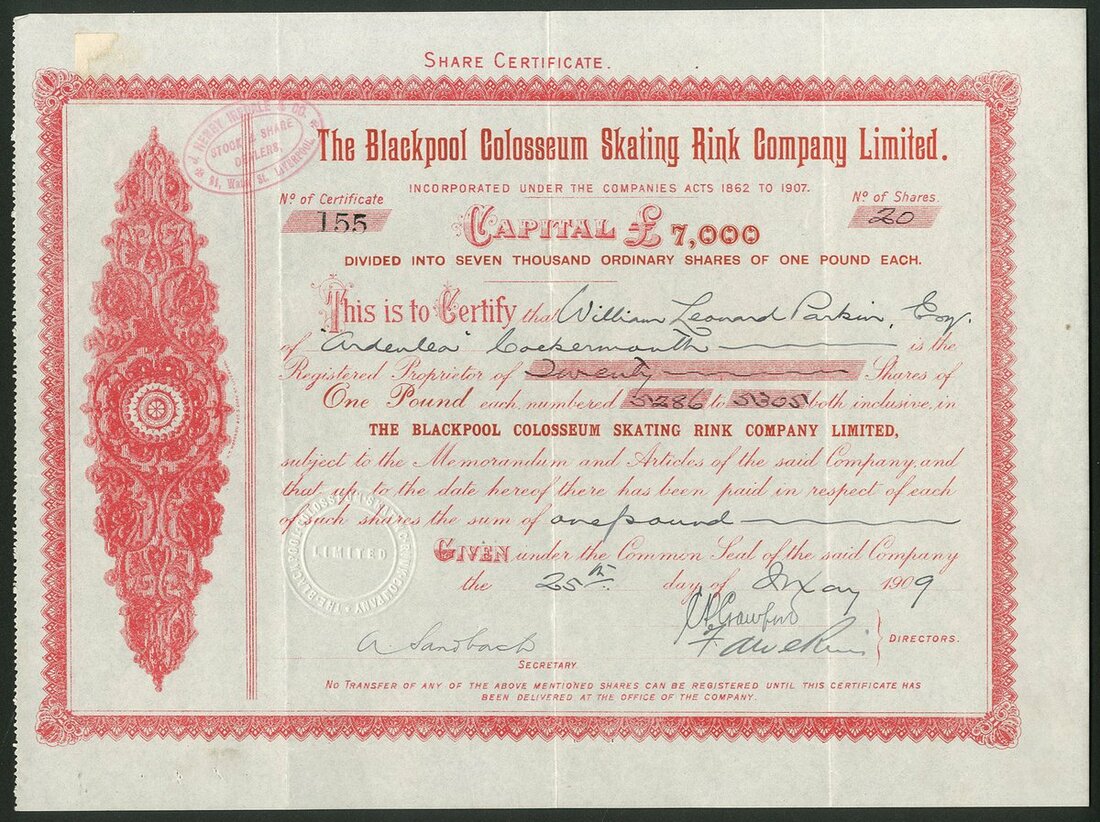 SHARE CERTIFICATE.
J. HENRY & CO.
STOCK & SHARE
DEALERS,
ST. LIVERPOOL.
The Blackpool Colosseum Skating Rink Company Limited.
INCORPORATED UNDER THE COMPANIES ACTS 1862 TO 1907.
No of Certificate
155
No of Shares
20
CAPITAL £7,000
DIVIDED INTO SEVEN THOUSAND ORDINARY SHARES OF ONE POUND EACH.
This is to Certify that William Leonard Parkin, Esq.
of "Ardenlea" Cockermouth is the
Registered Proprietor of Twenty Shares of
One Pound each, numbered 5286 to 5305 both inclusive, in
THE BLACKPOOL COLOSSEUM SKATING RINK COMPANY LIMITED,
subject to the Memorandum and Articles of the said Company, and
that up to the date hereof there has been paid in respect of each
of such shares the sum of one pound
GIVEN under the Common Seal of the said Company
the 25th day of May 1909
THE BLACKPOOL COLOSSEUM SKATING RINK COMPANY
LIMITED
Crawford
DIRECTORS.
A Sandbach
SECRETARY.
NO TRANSFER OF ANY OF THE ABOVE MENTIONED SHARES CAN BE REGISTERED UNTIL THIS CERTIFICATE HAS
BEEN DELIVERED AT THE OFFICE OF THE COMPANY.